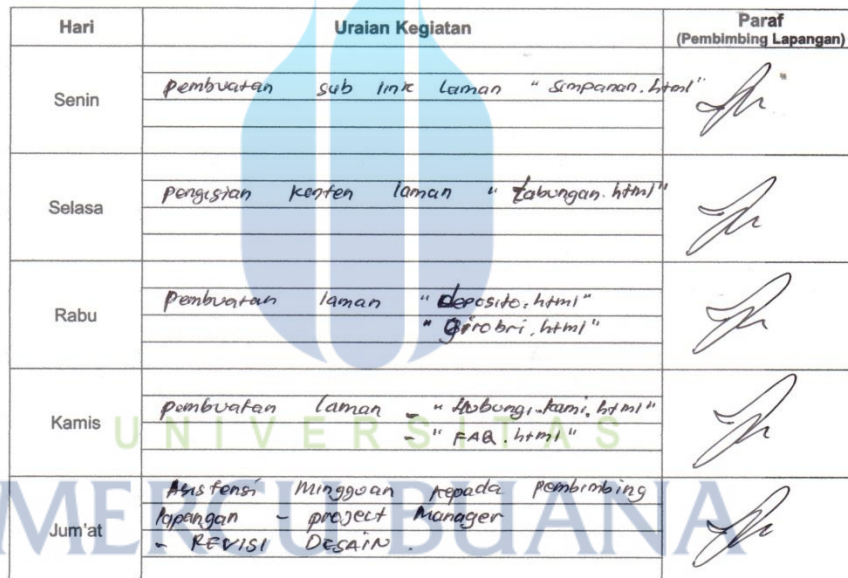 Hari Uraian Kegiatan Paraf
(Pembimbing Lapangan)
Senin
pembuatan sub link laman "simpanan.html"
Selasa
pengisian konten laman "tabungan.html"
Rabu
pembuatan laman "deposito.html"
"girobri.html"
Kamis
pembuatan laman - "Hubungi.kami.html"
- "FAQ.html"
UNIVERSITAS
MERCU BUANA
Jum'at
Asistensi Mingguan kepada pembimbing
lapangan - project Manager
- REVISI DESAIN.